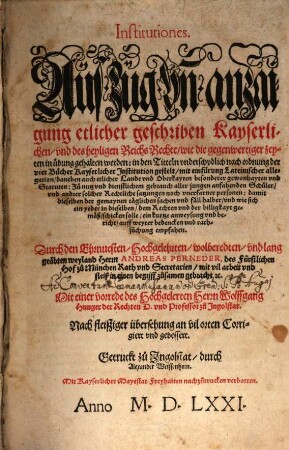 Institutiones.
Auszug vn̄ anzai
gung etlicher geschriben Kayserli-
chen/ vnd des heyligen Reichs Rechte/ wie die gegenwertiger zey-
ten in übung gehalten werden: in den Titeln vnderschydlich nach ordnung der
vier Bücher Kayserlicher Institution gestelt/ mit einfürung Lateinischer alle-
gation/ daneben auch etliche Lands vnd Oberkayten besonderer gewonhayten vnd
Statuten: Zů nutz vnd dienstlichem gebrauch aller jungen anfahenden Schüler/
vnd anderer solcher Rechtliche satzungen noch vnerkanter personen: damit
dieselben der gemaynen täglichen sachen vnd fäll halber/ vnd wie sich
ein yeder in dieselben/ dem Rechten vnd der billigkayt ge-
mäß schicken solle/ ein kurtze anweysung vnd be-
richt/ auff weyter bedencken vnd rath-
süchung empfahen.
Durch den Ehrnuesten/ Hochgelehrten/ Wolberedten/ vnd lang
geübten weyland Herrn ANDREAS PERNEDER, des Fürstlichen
Hof zů München Rath vnd Secretarien/ mit vil arbeit vnd
fleiß in einen begriff zůsamen gebracht/ ꝛc.
Mit einer vorrede des Hochgelerten Herrn Wolffgang
Hunger der Rechten D. vnd Professor zů Ingolstat.
Nach fleißiger übersehung an vil orten Corri-
giert vnd gebessert.
Getruckt zů Ingolstat/ durch
Alexander Weissenhorn.
Mit Kayserlicher Mayestat Freyhaiten nachzůtrucken verbotten.
Anno M. D. LXXI.